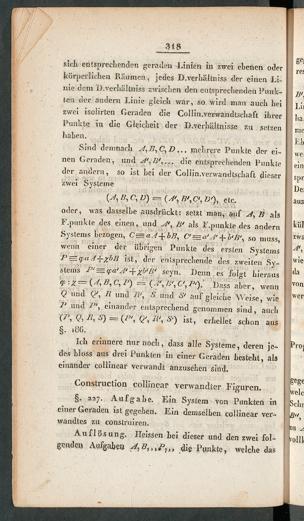 318
sich entsprechenden geraden Linien in zwei ebenen oder
körperlichen Räumen, jedes D.verhältniss der einen Li-
nie dem D.verhältniss zwischen den entsprechenden Punk-
ten der andern Linie gleich war, so wird man auch bei
zwei isolirten Geraden die Collin.verwandtschaft ihrer
Punkte in die Gleicheit der D.verhältnisse zu setzen
haben.
Sind demnach A, B, C, D... mehrere Punkte der ei-
nen Geraden, und A', B',... die entsprechenden Punkte
der andern, so ist bei der Collin.verwandtschaft dieser
zwei Systeme
(A, B, C, D) = (A', B', C', D'), etc.
oder, was dasselbe ausdrückt: setzt man, auf A, B als
F.punkte des einen, und A', B' als F.punkte des andern
Systems bezogen, C≡aA+bB, C'≡a'A'+b'B', so muss,
wenn einer der übrigen Punkte des ersten Systems
P≡φaA+χbB ist, der entsprechende des zweiten Sy-
stems P'≡φa'A'+χb'B' seyn. Denn es folgt hieraus
φ:χ=(A, B, C, P)=(A', B', C', P'). Dass aber, wenn
Q und Q', R und R', S und S' auf gleiche Weise, wie
P und P', einander entsprechend genommen sind, auch
(P, Q, R, S) = (P', Q', R', S') ist, erhellet schon aus
§. 186.
Ich erinnere nur noch, dass alle Systeme, deren je-
des bloss aus drei Punkten in einer Geraden besteht, als
einander collinear verwandt anzusehen sind.
Construction collinear verwandter Figuren.
§. 227. Aufgabe. Ein System von Punkten in
einer Geraden ist gegeben. Ein demselben collinear ver-
wandtes zu construiren.
Auflösung. Heissen bei dieser und den zwei fol-
genden Aufgaben die Punkte, welche das